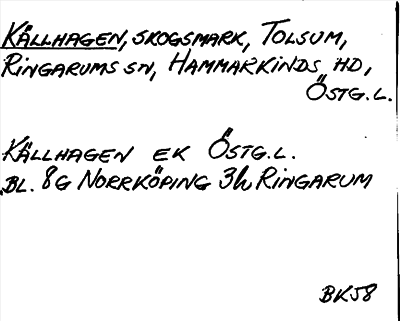 KÄLLHAGEN, SKOGSMARK, TOLSUM,
RINGARUMS SN, HAMMARKINDS HD,
ÖSTG.L.
KÄLLHAGEN EK ÖSTG.L.
BL. 8G NORRKÖPING 3h RINGARUM
BK58